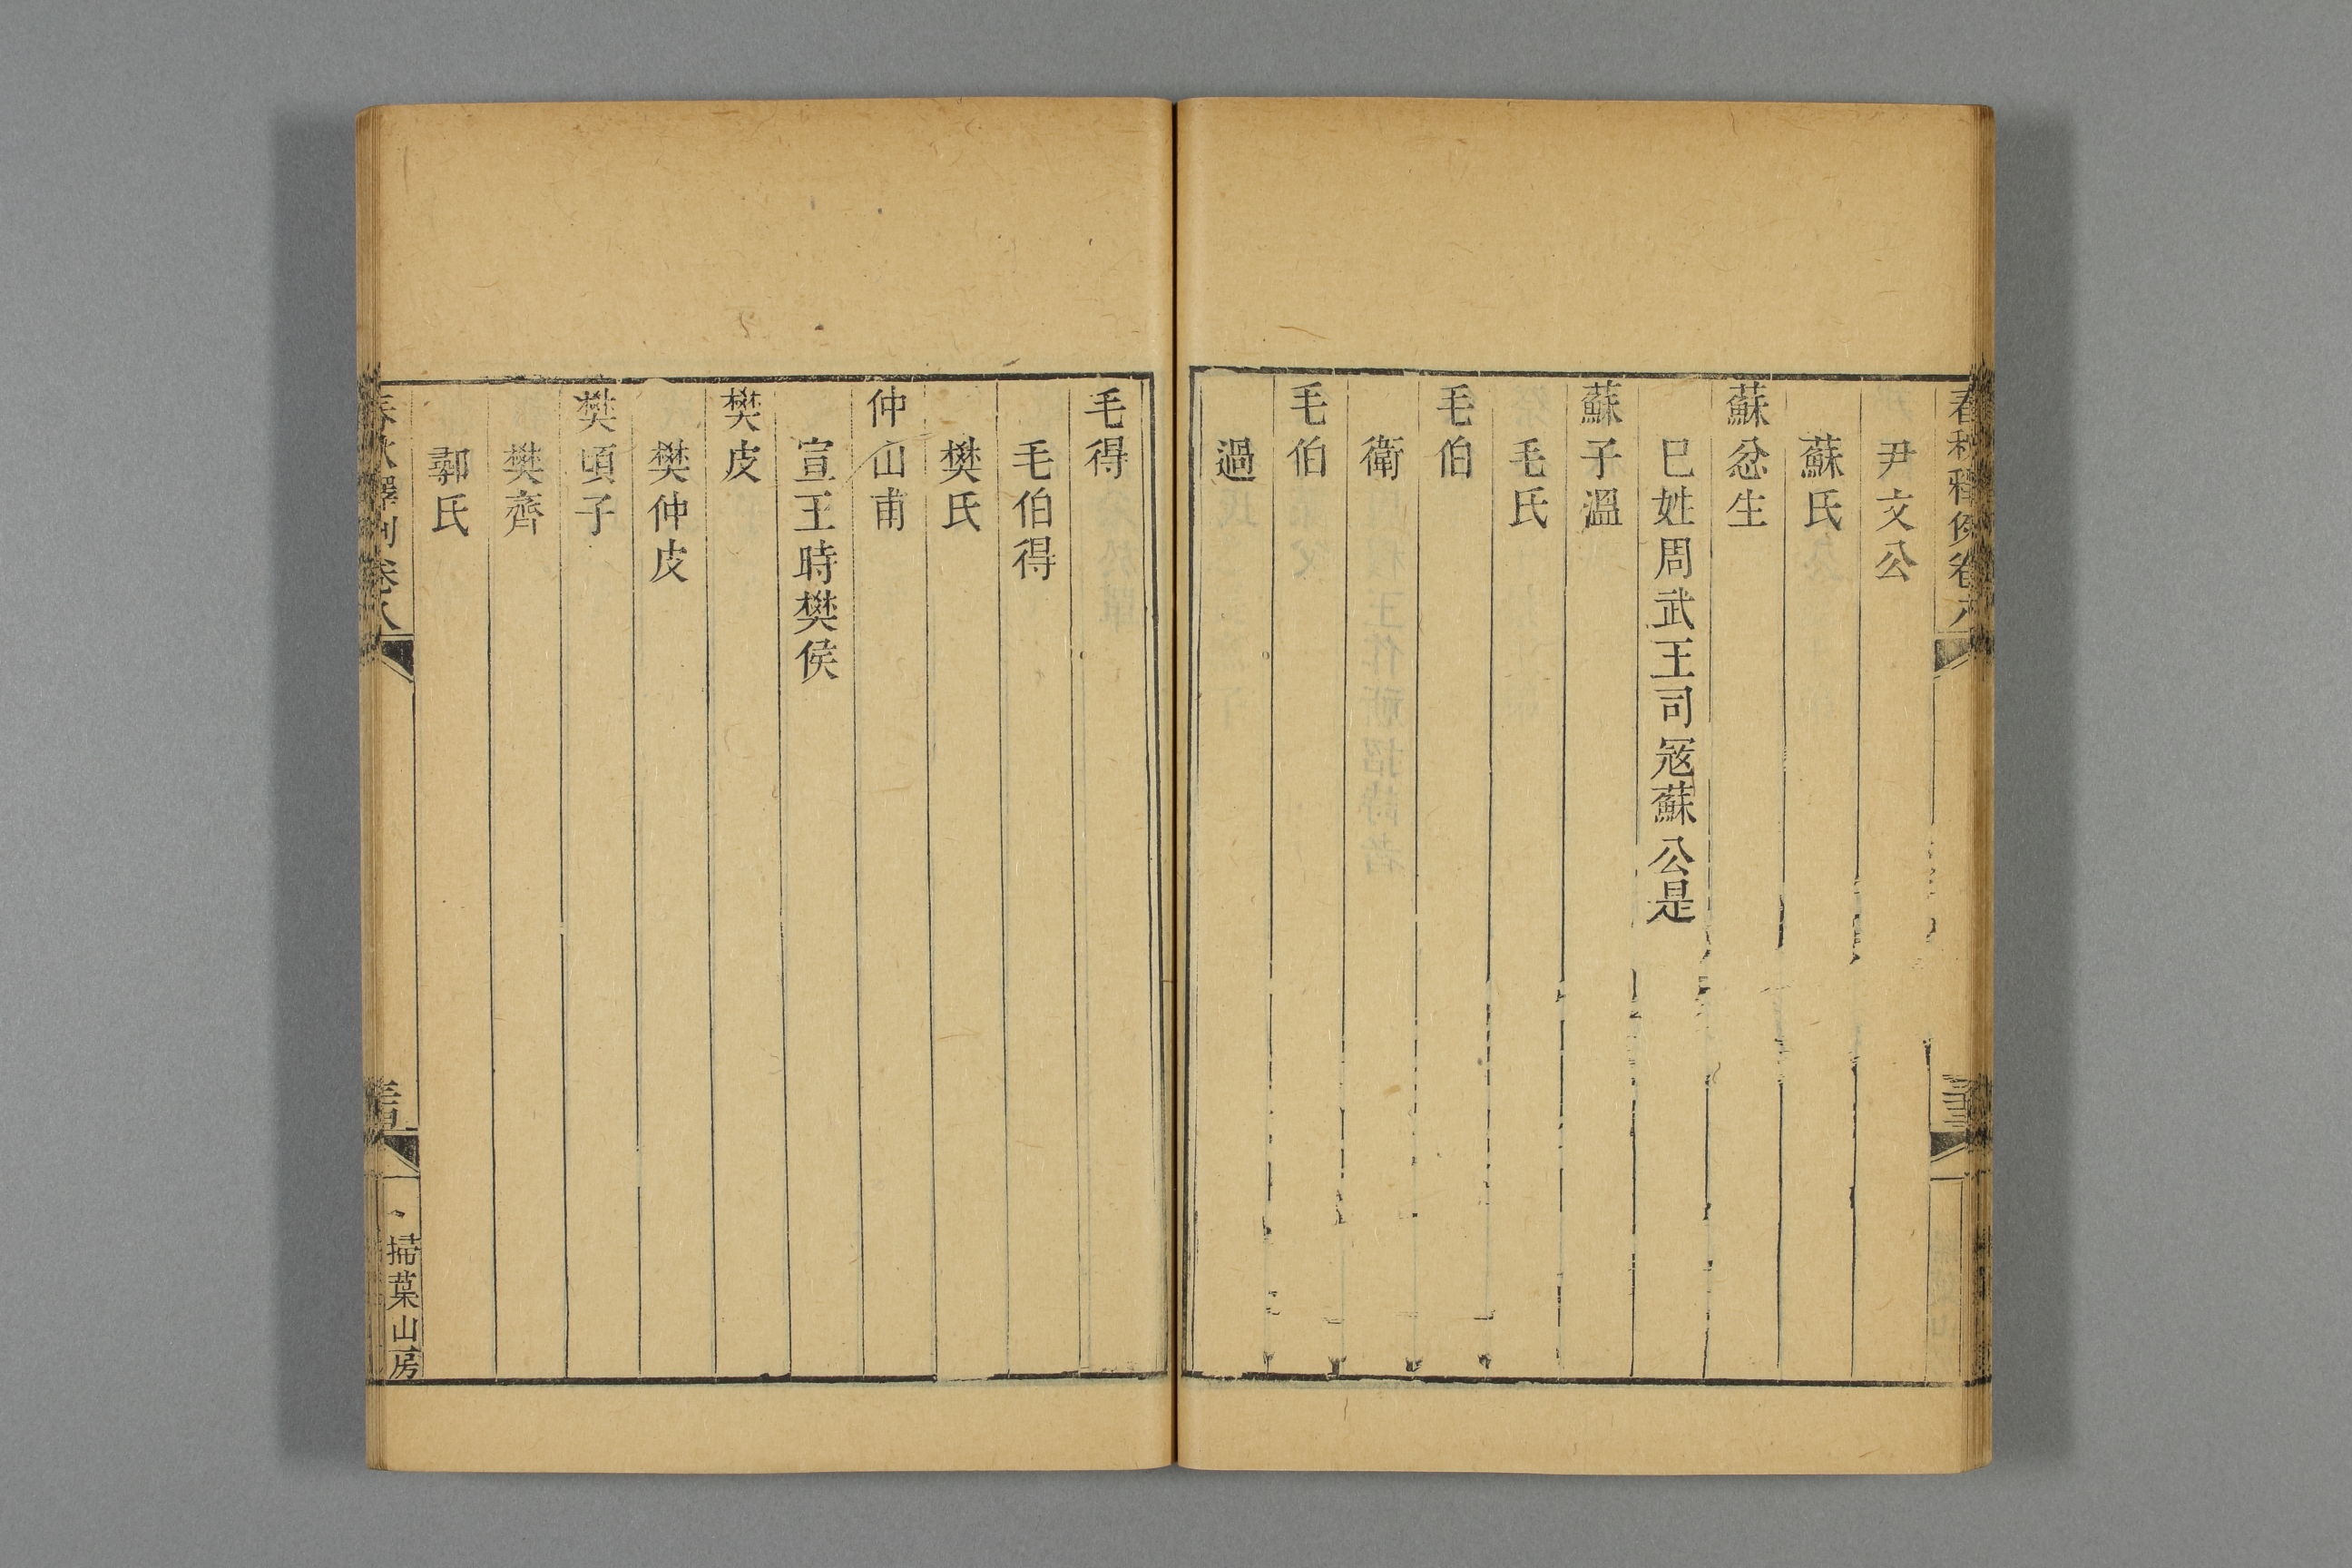 春秋釋例卷八
尹文公
蘇氏
蘇忿生
巳姓周武王司寇蘇公是
蘇子溫
毛氏
毛伯
衛
毛伯
過
毛得
毛伯得
樊氏
仲山甫
宣王時樊侯
樊皮
樊仲皮
樊頃子
樊齊
鄩氏
春秋釋例卷八
掃葉山房